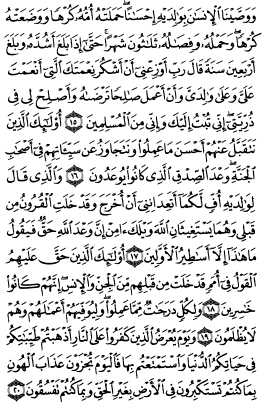 وَوَصَّيْنَا الْإِنسَانَ بِوَالِدَيْهِ إِحْسَانًا حَمَلَتْهُ أُمُّهُ كُرْهًا وَوَضَعَتْهُ
كُرْهًا وَحَمْلُهُ وَفِصَالُهُ ثَلَاثُونَ شَهْرًا حَتَّىٰ إِذَا بَلَغَ أَشُدَّهُ وَبَلَغَ
أَرْبَعِينَ سَنَةً قَالَ رَبِّ أَوْزِعْنِي أَنْ أَشْكُرَ نِعْمَتَكَ الَّتِي أَنْعَمْتَ
عَلَيَّ وَعَلَىٰ وَالِدَيَّ وَأَنْ أَعْمَلَ صَالِحًا تَرْضَاهُ وَأَصْلِحْ لِي فِي
ذُرِّيَّتِي إِنِّي تُبْتُ إِلَيْكَ وَإِنِّي مِنَ الْمُسْلِمِينَ ١٥ أُولَٰئِكَ الَّذِينَ
نَتَقَبَّلُ عَنْهُمْ أَحْسَنَ مَا عَمِلُوا وَنَتَجَاوَزُ عَن سَيِّئَاتِهِمْ فِي أَصْحَابِ
الْجَنَّةِ وَعْدَ الصِّدْقِ الَّذِي كَانُوا يُوعَدُونَ ١٦ وَالَّذِي قَالَ
لِوَالِدَيْهِ أُفٍّ لَّكُمَا أَتَعِدَانِنِي أَنْ أُخْرَجَ وَقَدْ خَلَتِ الْقُرُونُ مِن
قَبْلِي وَهُمَا يَسْتَغِيثَانِ اللَّهَ وَيْلَكَ آمِنْ إِنَّ وَعْدَ اللَّهِ حَقٌّ فَيَقُولُ
مَا هَٰذَا إِلَّا أَسَاطِيرُ الْأَوَّلِينَ ١٧ أُولَٰئِكَ الَّذِينَ حَقَّ عَلَيْهِمُ
الْقَوْلُ فِي أُمَمٍ قَدْ خَلَتْ مِن قَبْلِهِم مِّنَ الْجِنِّ وَالْإِنسِ إِنَّهُمْ كَانُوا
خَاسِرِينَ ١٨ وَلِكُلٍّ دَرَجَاتٌ مِّمَّا عَمِلُوا وَلِيُوَفِّيَهُمْ أَعْمَالَهُمْ وَهُمْ
لَا يُظْلَمُونَ ١٩ وَيَوْمَ يُعْرَضُ الَّذِينَ كَفَرُوا عَلَى النَّارِ أَذْهَبْتُمْ طَيِّبَاتِكُمْ
فِي حَيَاتِكُمُ الدُّنْيَا وَاسْتَمْتَعْتُم بِهَا فَالْيَوْمَ تُجْزَوْنَ عَذَابَ الْهُونِ
بِمَا كُنتُمْ تَسْتَكْبِرُونَ فِي الْأَرْضِ بِغَيْرِ الْحَقِّ وَبِمَا كُنتُمْ تَفْسُقُونَ ٢٠